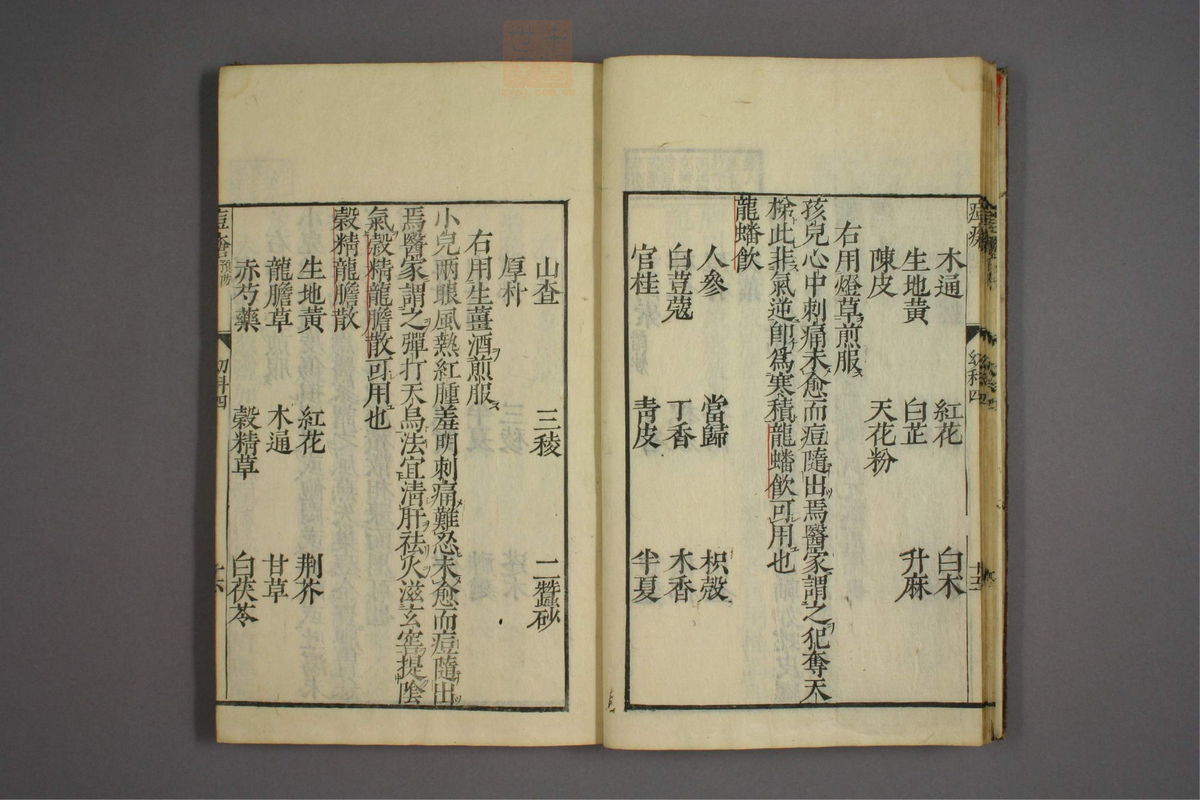 木通 紅花 白朮
生地黃 白芷 升麻
陳皮 天花粉
右用燈草煎服
孩兒心中刺痛未愈而痘隨出焉醫家謂之犯奪天
梯此非氣逆卽爲寒積龍蟠飲可用也
龍蟠飲
人參 當歸 枳殼
白荳蔻 丁香 木香
官桂 青皮 半夏
山查 三稜 二蠶砂
厚朴
右用生薑酒煎服
小兒兩眼風熱紅腫羞明刺痛難忍未愈而痘隨出
焉醫家謂之彈打天烏法宜淸肝祛火滋玄窖提陰
氣穀精龍膽散可用也
穀精龍膽散
生地黃 紅花 荆芥
龍膽草 木通 甘草
赤芍藥 穀精草 白茯苓